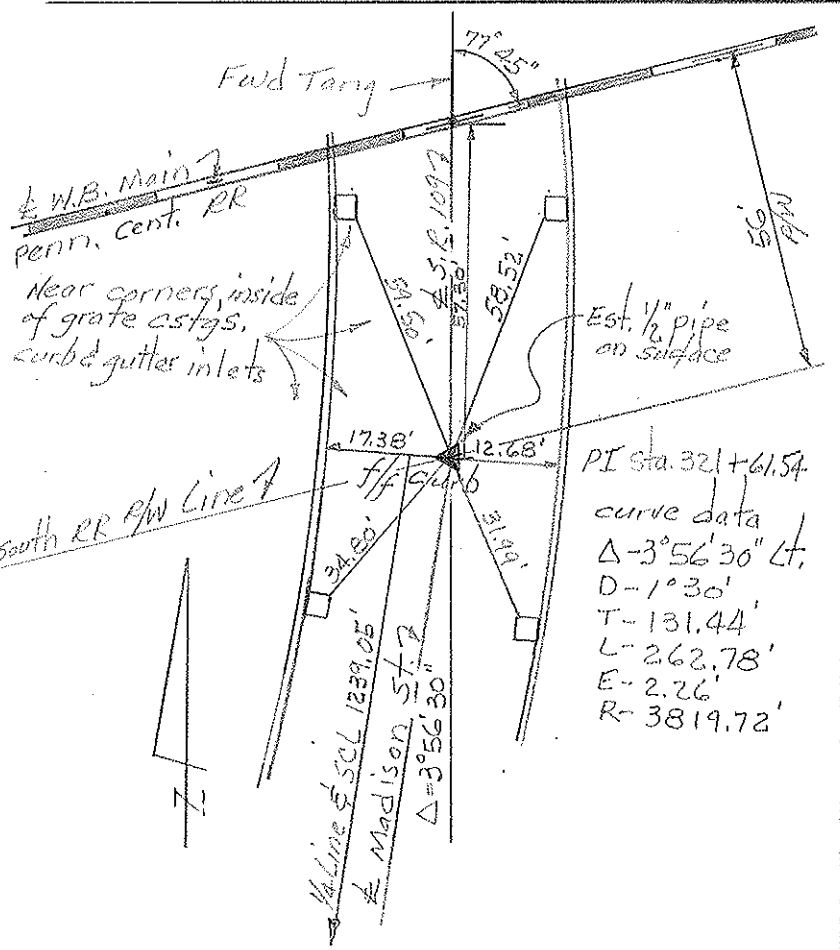 77°45"
Fwd Tang
℄ W.B. Main
Penn. Cent. RR
Near corners, inside
of grate cstgs.
curb & gutter inlets
℄ S.R. 109
57.30'
58.52'
56'
R/W
Est. 1/2" pipe
on surface
17.38'
12.68'
f/f curb
South RR R/W Line
34.80'
31.99'
PI sta. 321+61.54
curve data
Δ-3°56'30" Lt.
D-1°30'
T-131.44'
L-262.78'
E-2.26'
R-3819.72'
1/4 Line & SCL 1239.05'
℄ Madison St.
Δ=3°56'30"